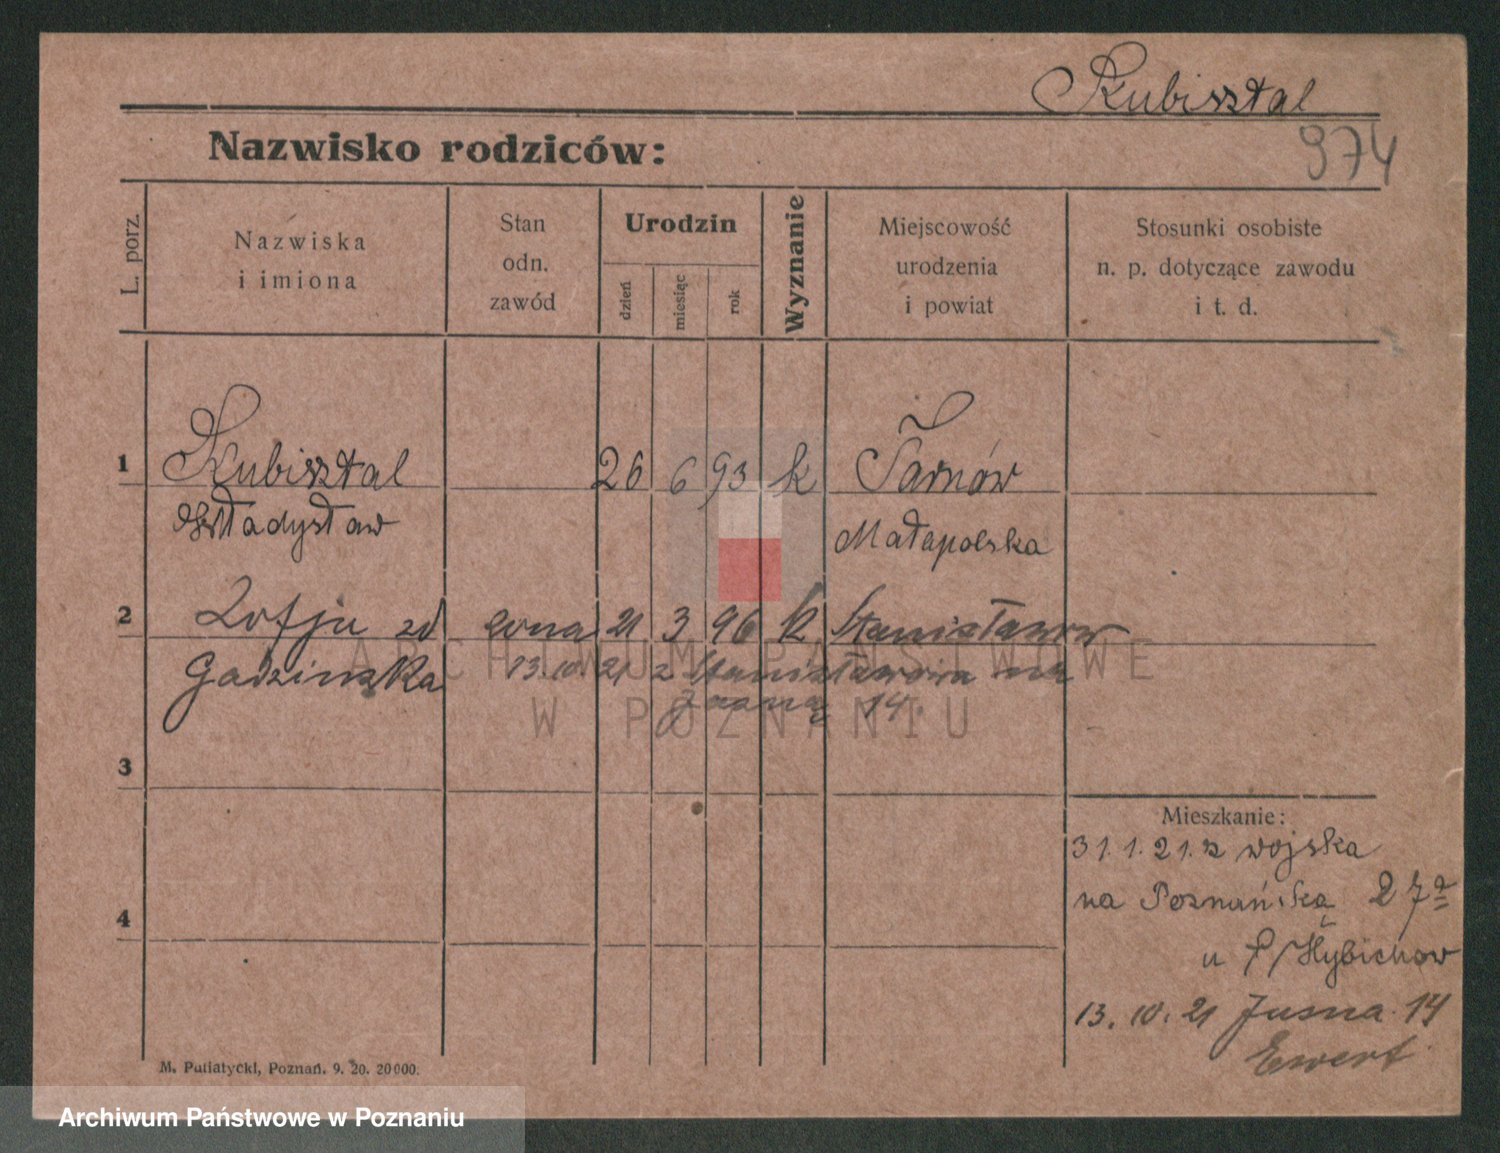 Kubisztal
974
Nazwisko rodziców:
L. porz.
Nazwiska
i imiona
Stan
odn.
zawód
Urodzin
dzień
miesiąc
rok
Wyznanie
Miejscowość
urodzenia
i powiat
Stosunki osobiste
n. p. dotyczące zawodu
i t. d.
1 Kubisztal 26 6 93 k Tarnów
Władysław Małapolska
2 Zofja zd żona 21 3 96 k Stanisławow
Gadzinska 13.10.21 z Stanisławowa na
Jasną 14.
3
4
Mieszkanie:
31.1.21. z wojska
na Poznańską 27a
u P/Hybichow
13.10.21 Jasna 14
Ewert
M. Putiatycki, Poznań. 9. 20. 20000.
ARCHIWUM PAŃSTWOWE
W POZNANIU
Archiwum Państwowe w Poznaniu